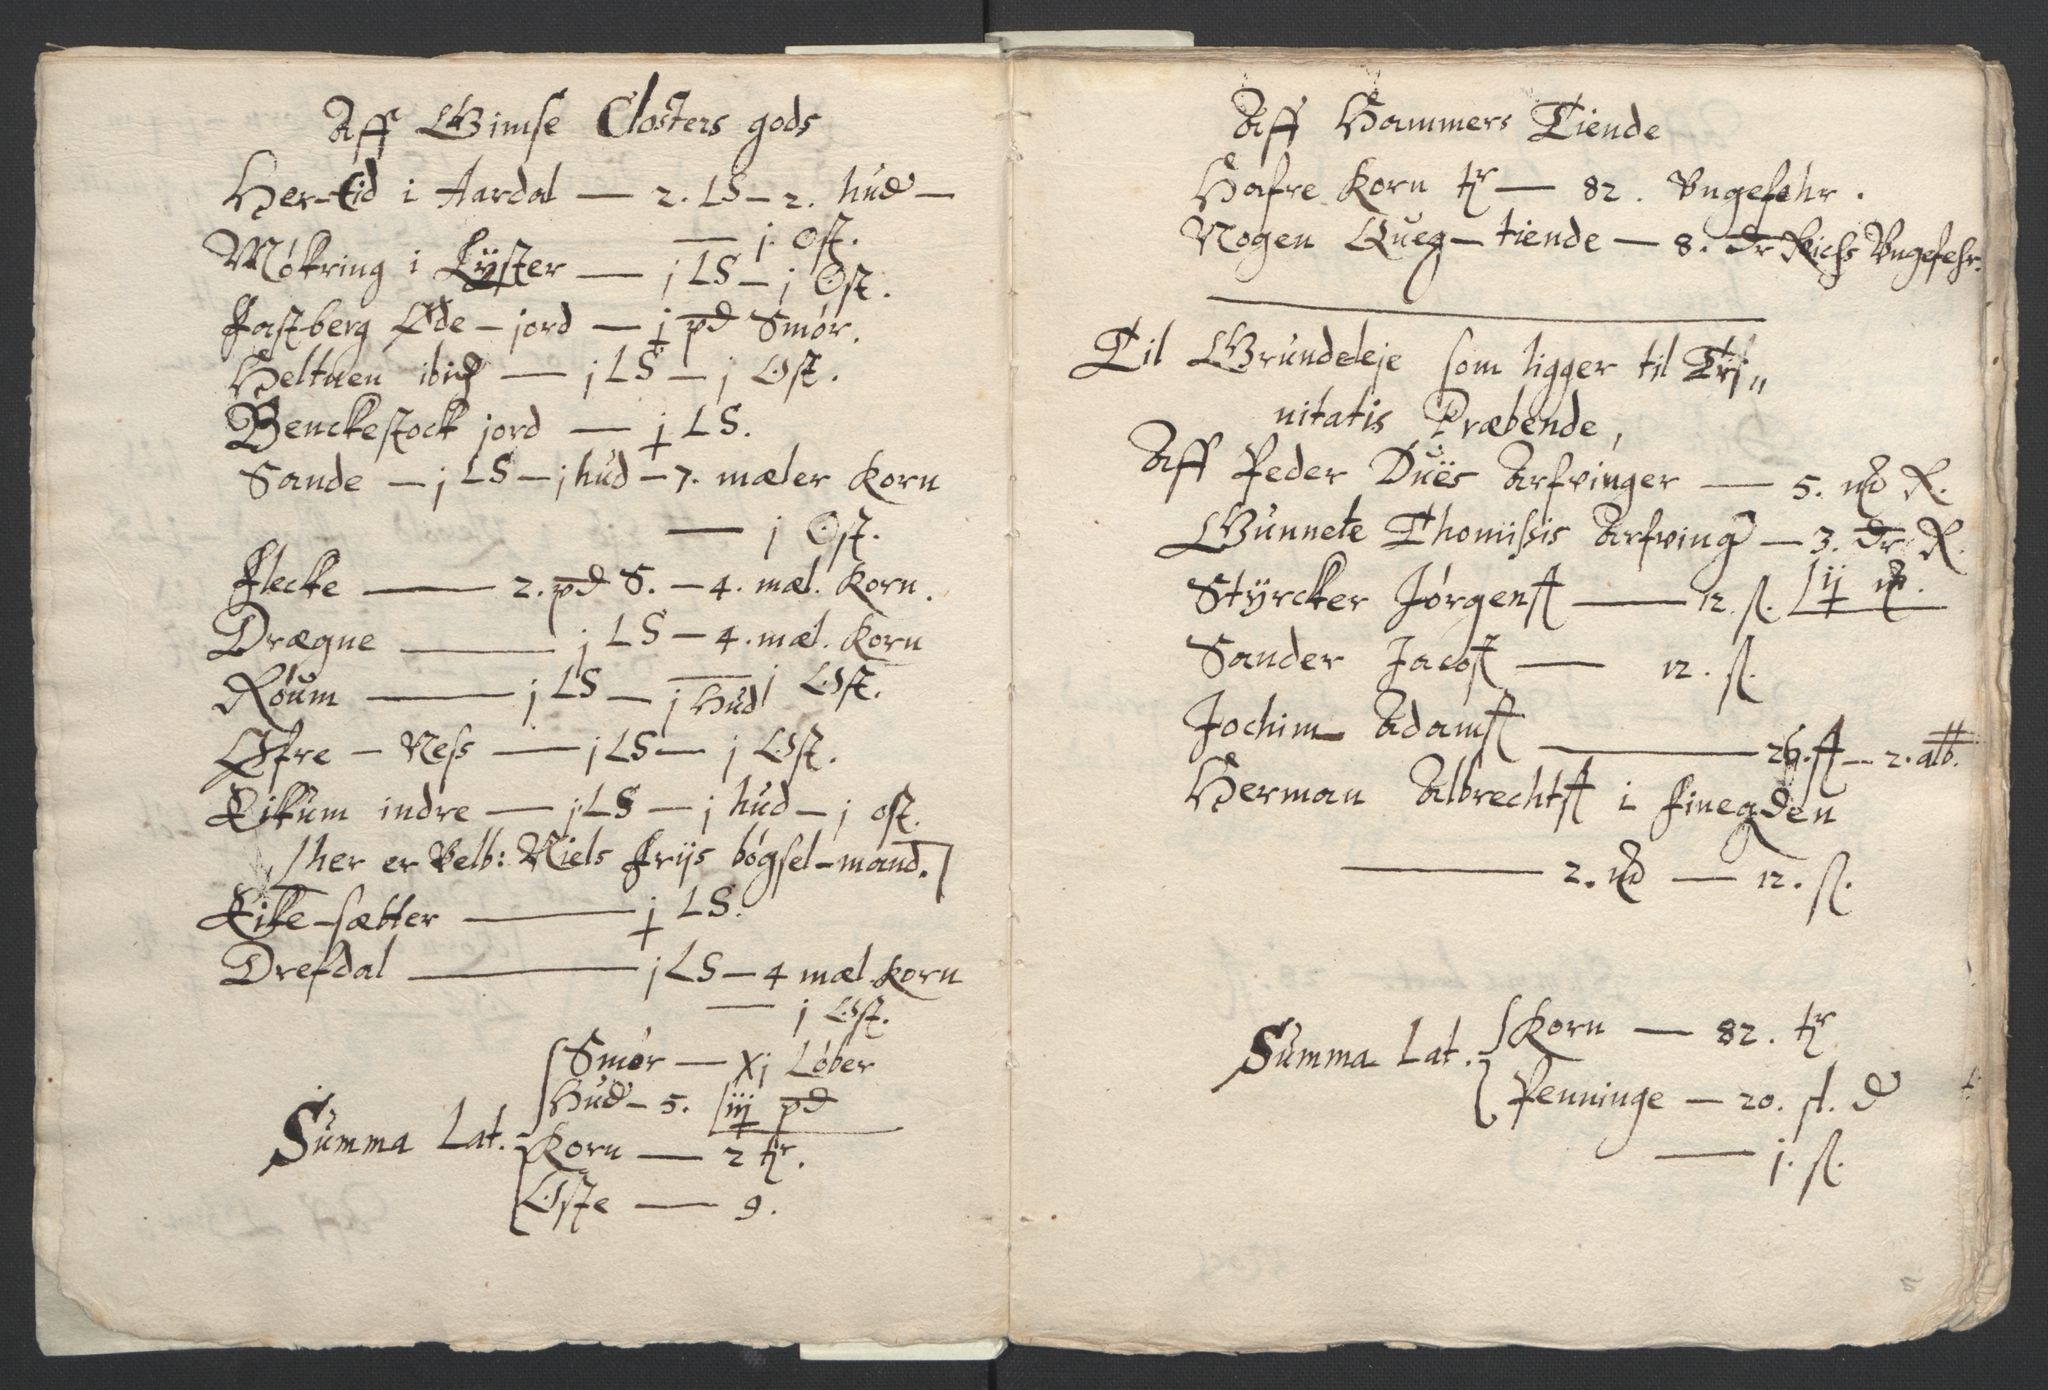 Aff Gimsø Closters gods
Her-Eid i Aardal — 2. LS — 2. hud —
— j. Ost.
Møkring i Lyster — j LS — j Ost.
Fastberg Øde-jord — j pd Smør.
Heltnen ibid — j LS — j Ost.
Benckestock jord — j LS.
Sande — j LS — j hud — 7. mæler Korn
— j Ost.
Flecke — 2. pd S. — 4. mæl. Korn.
Drægne — j LS — 4. mæl. Korn
— j Ost.
Røum — j LS — j Hud
Øfre-Ness — j LS — j Ost.
Eikum indre — j LS — j hud — j ost.
/her er Velb: Niels Friis bøgsel-mand./
Eike-sætter — j LS.
Drefdal — j LS — 4 mæl. Korn
— j Ost.
Smør — xj Løber
Hud — 5. iij pd
Summa Lat.
Korn — 2 tr.
Oste — 9.
Aff Hammers Tiende
Hafre Korn tr — 82. Vngefehr.
Nogen Queg-tiende — 8. dr Richs Vngefehr.
Til Grundeleje som ligger til Tri„
nitatis Præbende,
Aff Peder Dues Arfvinger — 5. mk R.
Gunnete Thomissis Arfving — 3. dr R.
Styrcker Jørgens — 12. ß. ij mk.
Sander Jacos — 12. ß.
Jochim Adams — 26. ß — 2. alb.
Herman Albrechts i Finegden
— 2. mk — 12. ß.
Korn — 82. tr
Summa Lat.
Penninge — 20. sl. d
— j. ß.